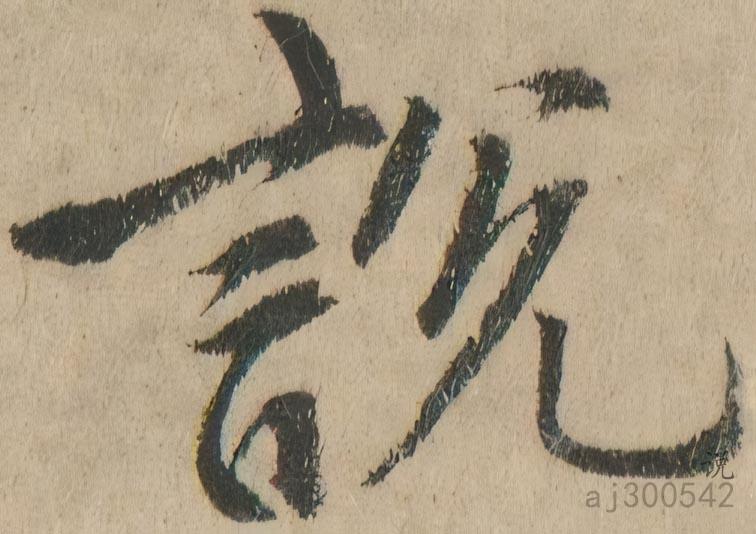 說
说
aj300542